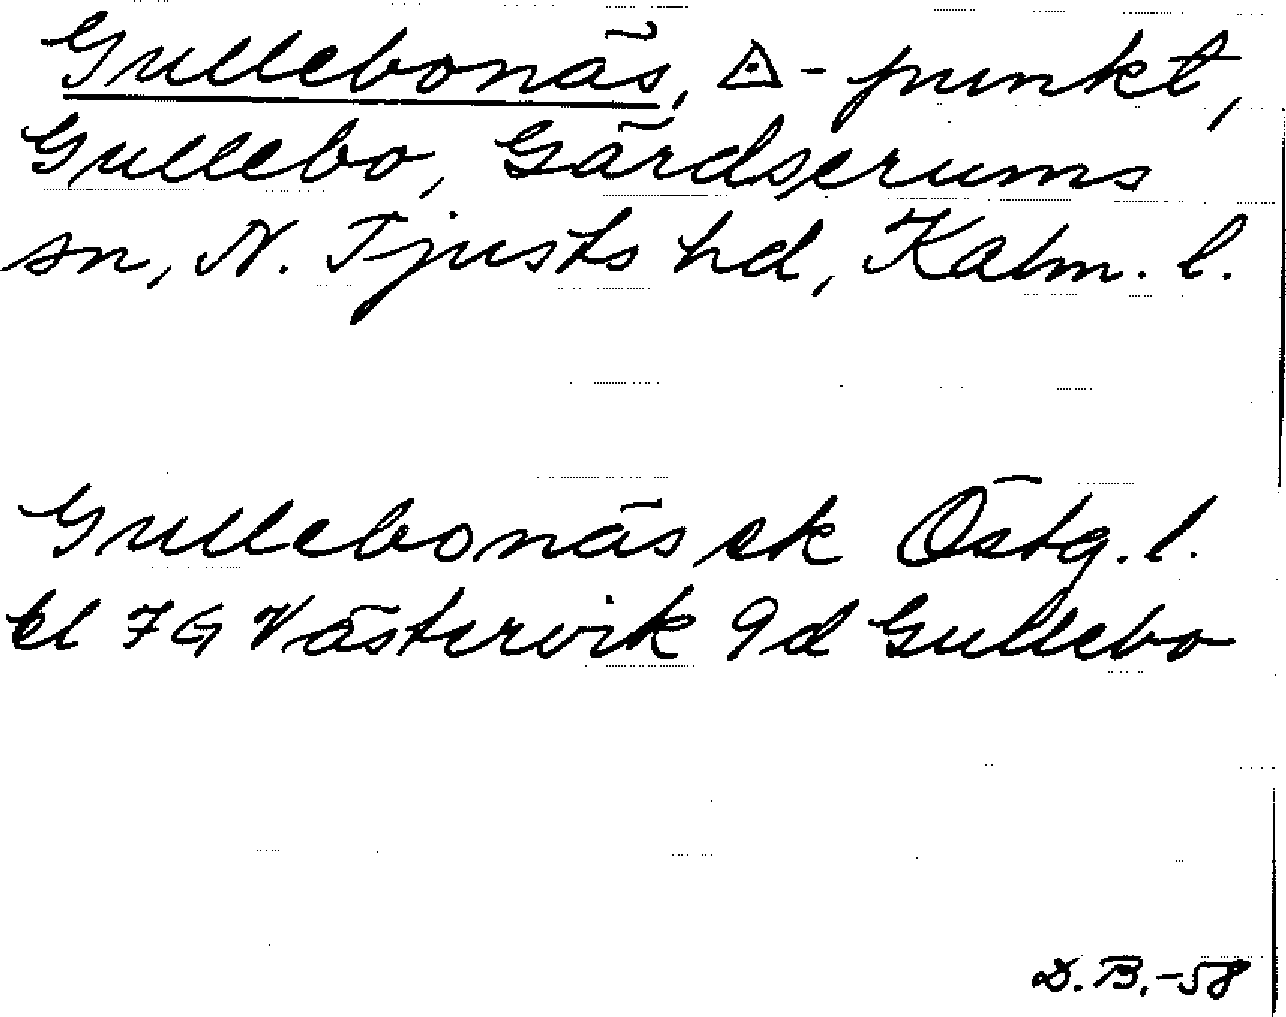 Gullebonäs, ◬-punkt,
Gullebo, Gärdserums
sn, N. Tjusts hd, Kalm. l.
Gullebonäs ek Östg. l.
bl 7G Västervik 9d Gullebo
D.B.-58